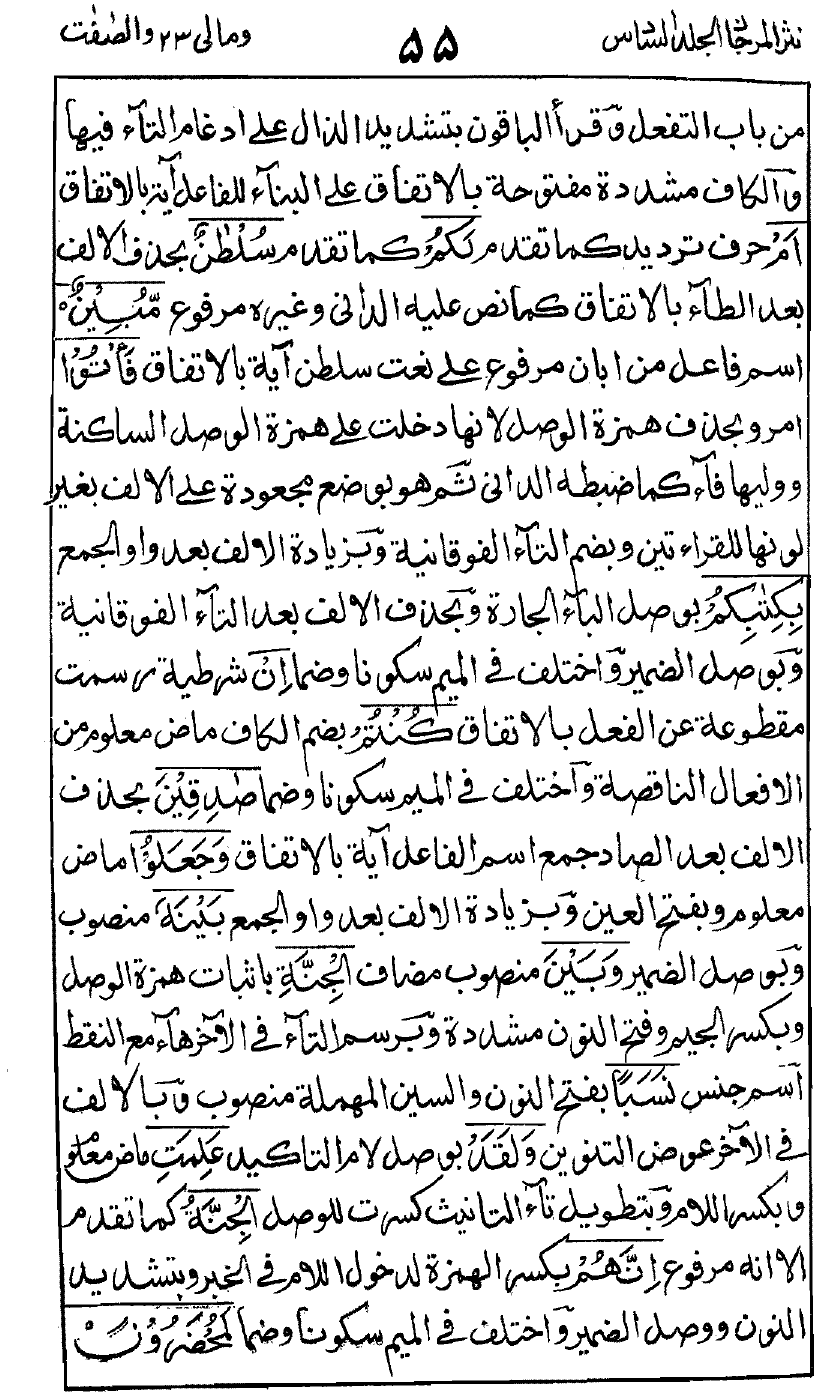 نثر المرجان الجلد السادس ۵۵ ومالى ۲۳ والصٰفٰت
من باب التفعل وقرأ الباقون بتشديد الذال على ادغام التآء فيها
وآلكاف مشددة مفتوحة بالاتفاق على البنآء للفاعل آية بالاتفاق
اَمْ حرف ترديد كما تقدم لَكُمْ كما تقدم سُلْطٰنٌ بحذف الالف
بعد الطآء بالاتفاق كما نص عليه الدانى وغيره مرفوع مُّبِيْنٌ ه
اسم فاعل من ابان مرفوع على نعت سلطن آية بالاتفاق فَأْتُوْا
امر وبحذف همزة الوصل لانها دخلت على همزة الوصل الساكنة
ووليها فآء كما ضبطه الدانى ثم هو بوضع مجعودة على الالف بغير
لونها للقراءتين وبضم التآء الفوقانية وبزيادة الالف بعد واو الجمع
بِكِتٰبِكُمْ بوصل البآء الجارة وبحذف الالف بعد التآء الفوقانية
وبوصل الضمير واختلف فى الميم سكونا وضما اِنْ شرطية رسمت
مقطوعة عن الفعل بالاتفاق كُنْتُمْ بضم الكاف ماض معلوم من
الافعال الناقصة وآختلف فى الميم سكونا وضما صٰدِقِيْنَ بحذف
الالف بعد الصاد جمع اسم الفاعل آية بالاتفاق وَجَعَلُوْا ماض
معلوم وبفتح العين وبزيادة الالف بعد واو الجمع بَيْنَهٗ منصوب
وبوصل الضمير وَبَيْنَ منصوب مضاف الْجِنَّةِ باثبات همزة الوصل
وبكسر الجيم وفتح النون مشددة وبرسم التآء فى الآخر هآء مع النقط
آسم جنس نَسَبًا بفتح النون والسين المهملة منصوب وبالالف
فى الآخر عوض التنوين وَلَقَدْ بوصل لام التاكيد عَلِمَتِ ماض معلوم
وبكسر اللام وبتطويل تآء التانيث كسرت للوصل الْجِنَّةُ كما تقدم
الا انه مرفوع اِنَّهُمْ بكسر الهمزة لدخول اللام فى الخبر وبتشديد
النون ووصل الضمير واختلف فى الميم سكونا وضما لَمُحْضَرُوْنَ